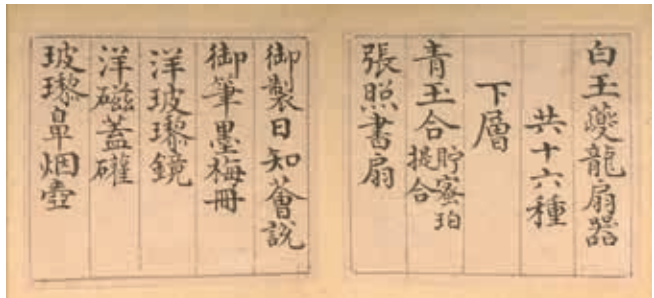 白玉夔龍扇器
共十六種
下層
青玉合貯蜜珀提合
張照書扇
御製日知薈說
御筆墨梅冊
洋玻瓈鏡
洋磁蓋罐
玻瓈鼻烟壺